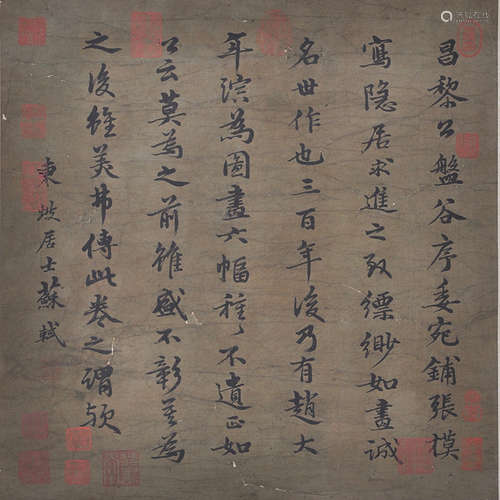 昌黎公盤谷序委宛鋪張模
寫隱居求進之致縹緲如畫誠
名世作也三百年後乃有趙大
年淙為圖畫六幅種種不遺正如
公云莫為之前雖盛不彰莫為
之後雖美弗傳此卷之謂歟
東坡居士蘇軾